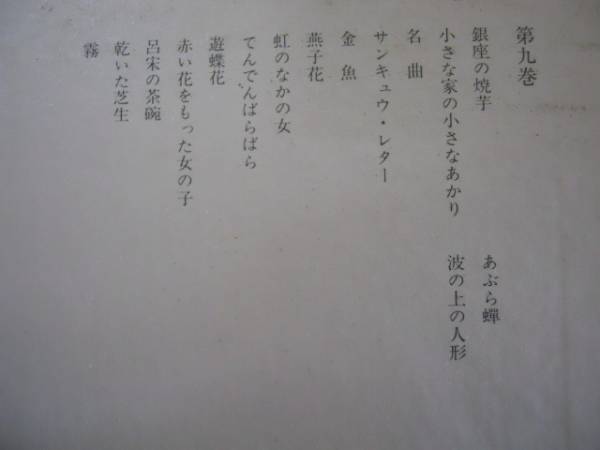 第九巻
銀座の焼芋
小さな家の小さなあかり
名曲
サンキュウ・レター
金魚
燕子花
虹のなかの女
てんでんばらばら
遊蝶花
赤い花をもった女の子
呂宋の茶碗
乾いた芝生
霧
あぶら蟬
波の上の人形